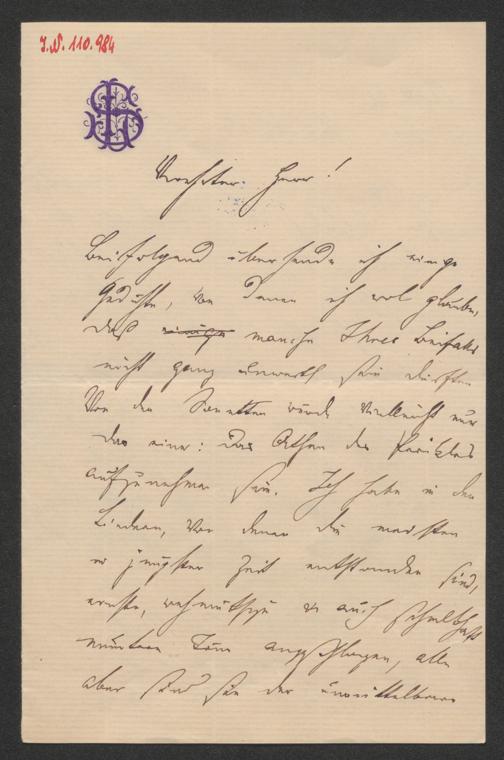 J.N. 110.984
Verehrter Herr!
Beifolgend übersende ich einige
Gedichte, von denen ich wol glaube,
daß einige manche Ihres Beifalls
nicht ganz unwerth sein dürften
Von den Sonetten würde vielleicht nur
das eine: Das Athen des Perikles
aufzunehmen sein. Ich habe in den
Liedern, von denen die meisten
in jüngster Zeit entstanden sind,
ernste, wehmüthige u auch
muntere Töne angeschlagen, alle
aber sind sie der unmittelbaren